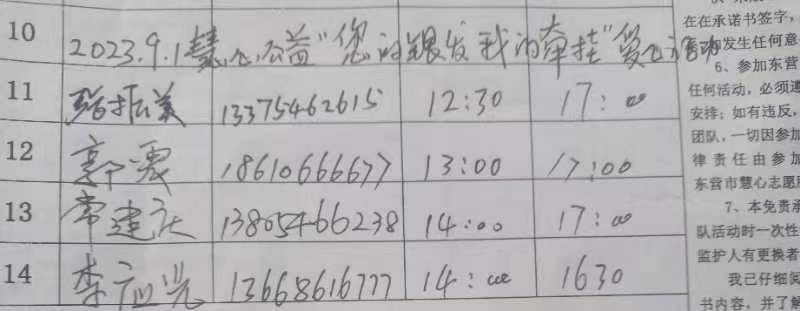 10 2023.9.1慧心公益"您的银发我的牵挂"爱心活动
11 张振美 13375462615 12:30 17:00
12 郭霞 18610666677 13:00 17:00
13 常建庆 13805466238 14:00 17:00
14 李应光 13668616777 14:00 1630
在在承诺书签字,
如发生任何意
6、参加东营
任何活动,必须遵
安排;如有违反,
团队,一切因参加
律责任由参加
东营市慧心志愿
7、本免责承
队活动时一次性
监护人有更换者
我已仔细阅
书内容,并了解